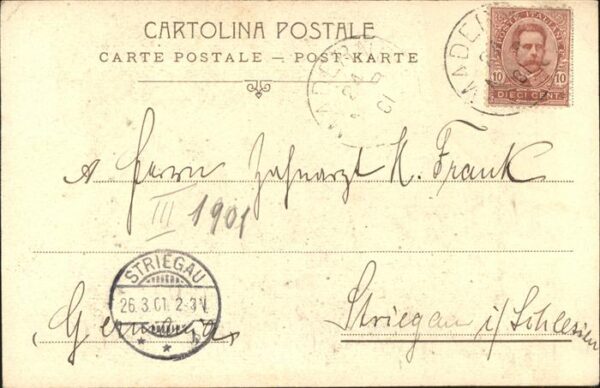 CARTOLINA POSTALE
CARTE POSTALE — POST-KARTE
MADERNO
24
3
01
POSTE ITALIANE
10 10
DIECI CENT.
A Herrn Zahnarzt K. Frank
III 1901
STRIEGAU
26.3.01. 2-3N.
(Germania)
Striegau i/Schlesien